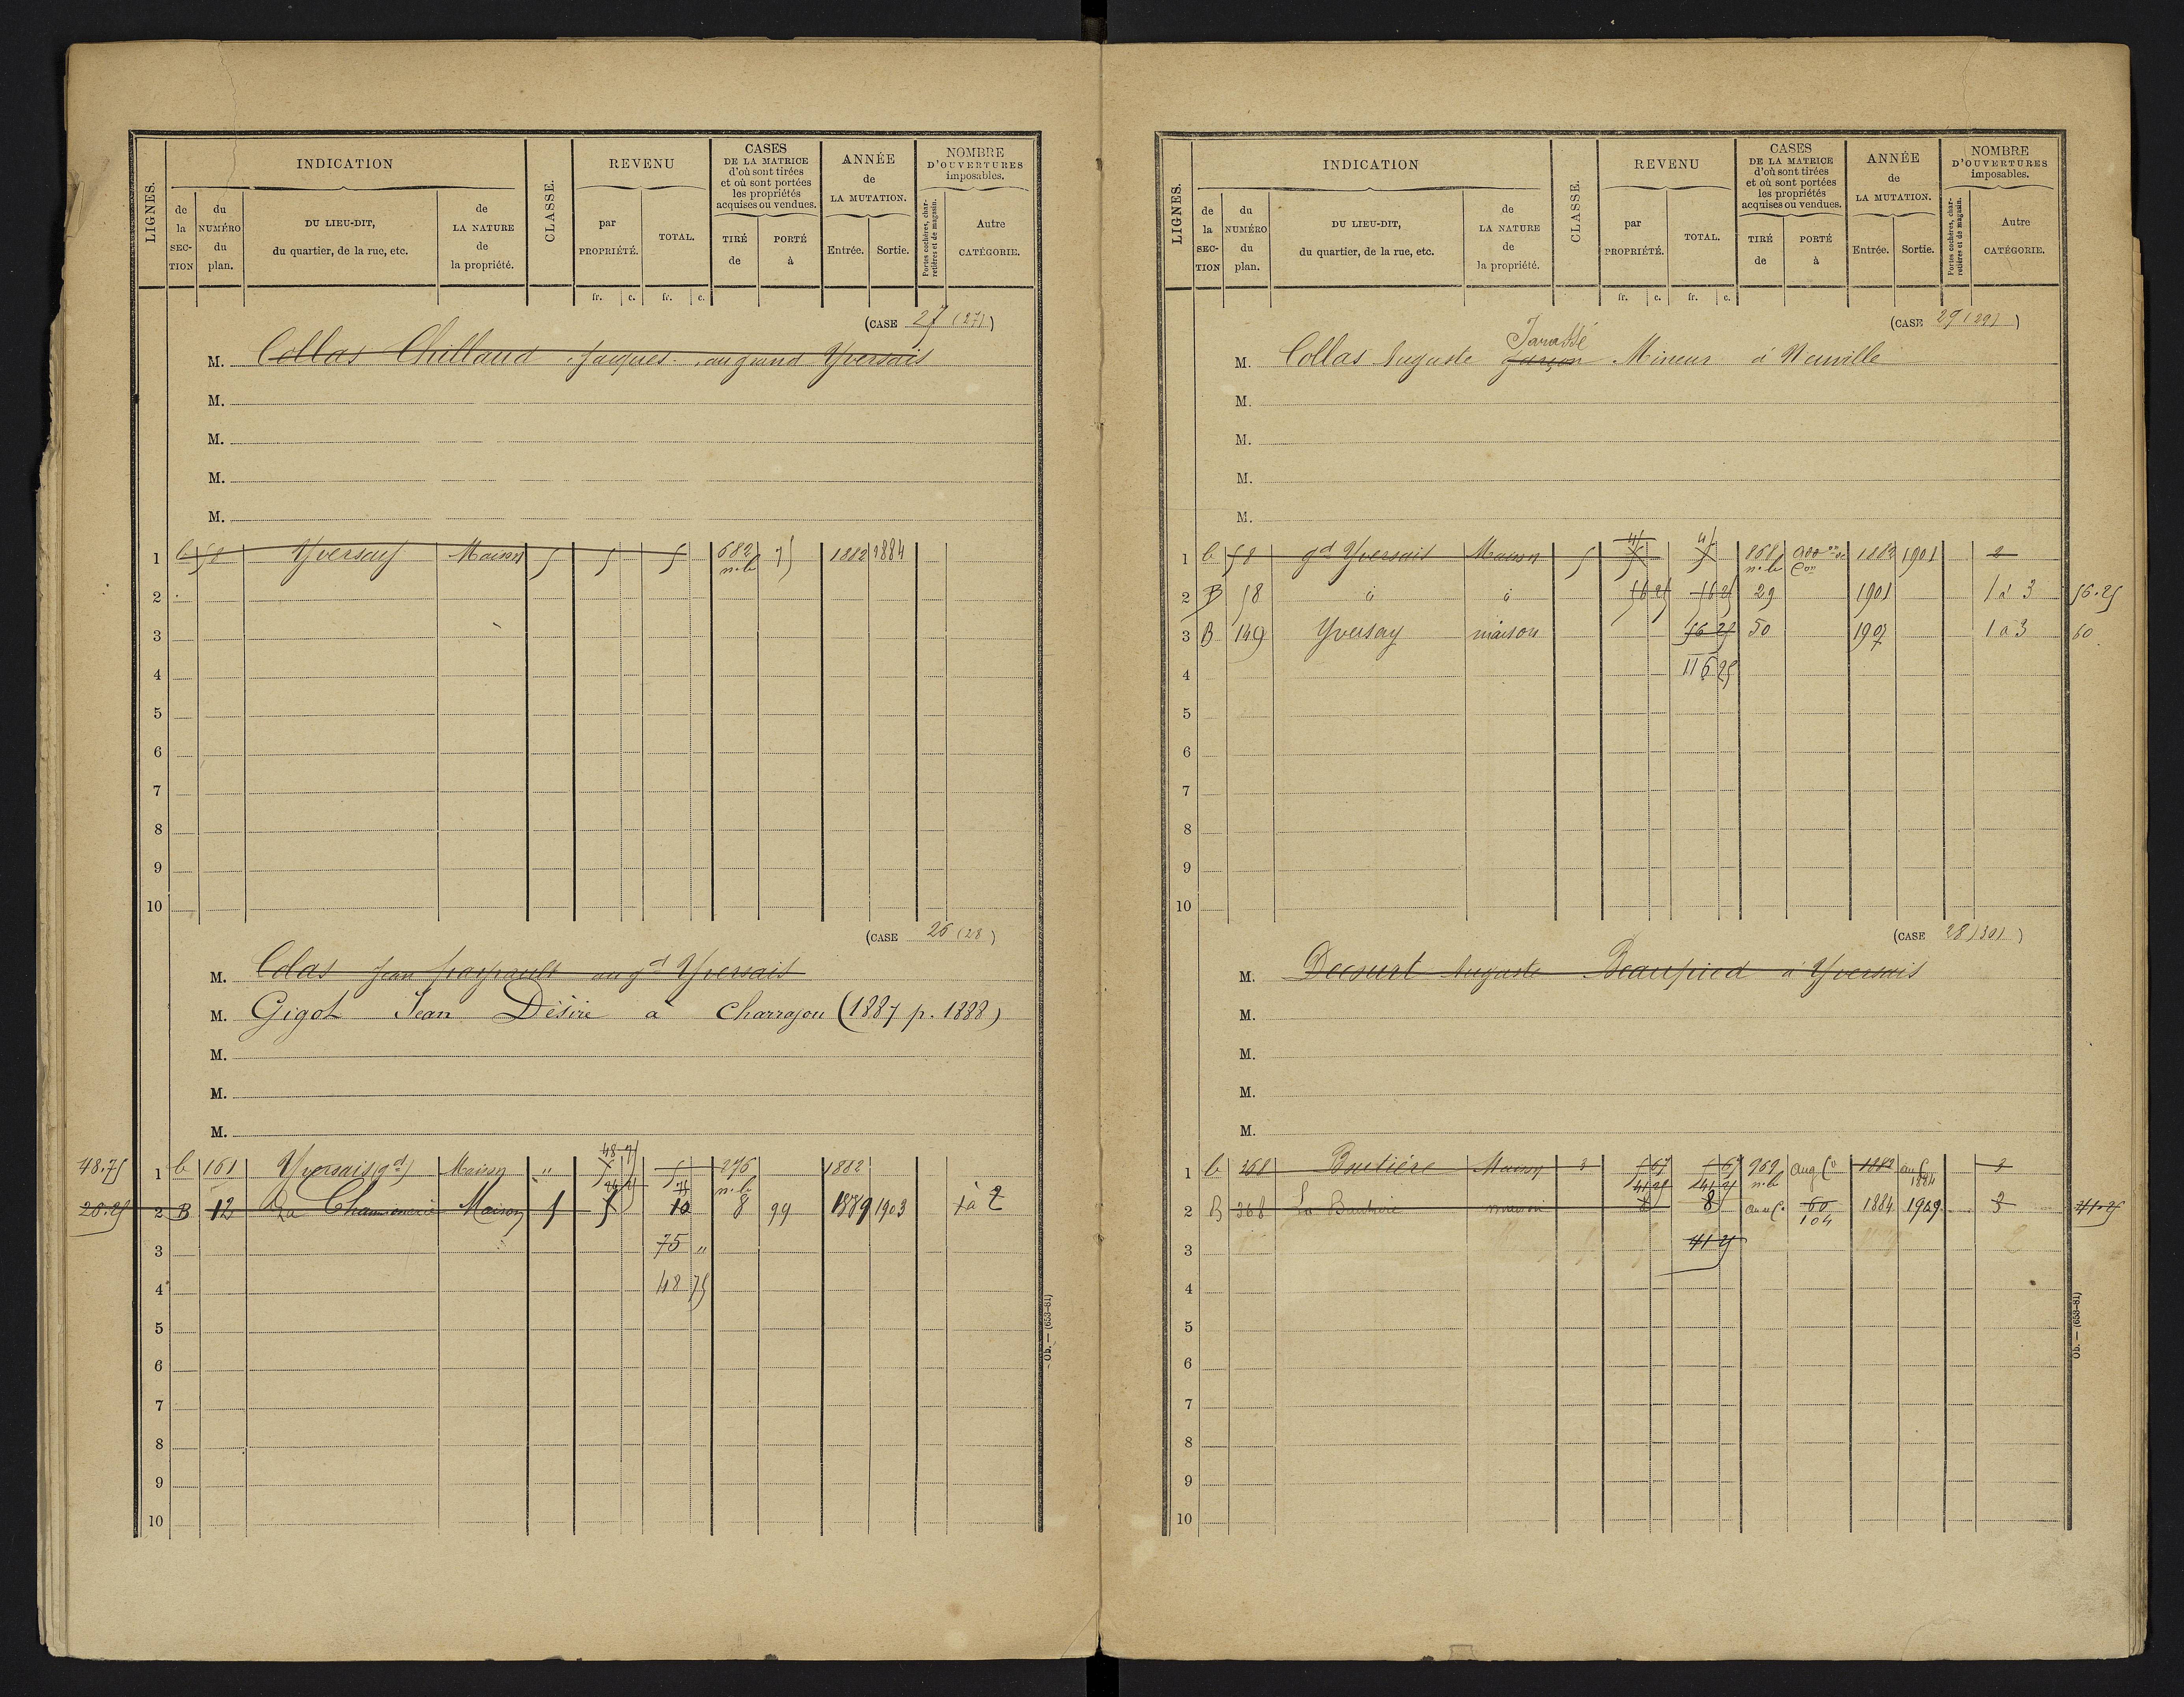 LIGNES.
INDICATION
CLASSE.
REVENU
CASES
DE LA MATRICE
d'où sont tirées
et où sont portées
les propriétés
acquises ou vendues.
ANNÉE
de
LA MUTATION.
NOMBRE
D'OUVERTURES
imposables.
de la SECTION
du NUMÉRO du plan.
DU LIEU-DIT,
du quartier, de la rue, etc.
de LA NATURE de la propriété.
par PROPRIÉTÉ.
TOTAL.
TIRÉ de
PORTÉ à
Entrée.
Sortie.
Portes cochères, charretières et de magasin.
Autre CATÉGORIE.
fr. c. fr. c.
(CASE 27 (27))
M. Collas Chillaud Jacques au grand Yversais
M.
M.
M.
M.
1 b 58 Yversay Maison 5 5 5 682 n.b 75 1882 1884
2
3
4
5
6
7
8
9
10
(CASE 26 (28)
M. Colas Jean au gd Yversais
M. Gigot Jean Désiré à Charrajou (1887 p. 1888)
M.
M.
M.
48.75 1 b 161 Yversais (gd) Maison " 5 48 75 5 276 n.b 1882
28.25 2 B 12 La Maison 5 5 10 8 99 1889 1903 1 à 2
3 75 "
4 48 75
5
6
7
8
9
10
Ob. — (653-81)
LIGNES.
INDICATION
CLASSE.
REVENU
CASES
DE LA MATRICE
d'où sont tirées
et où sont portées
les propriétés
acquises ou vendues.
ANNÉE
de
LA MUTATION.
NOMBRE
D'OUVERTURES
imposables.
de la SECTION
du NUMÉRO du plan.
DU LIEU-DIT,
du quartier, de la rue, etc.
de LA NATURE de la propriété.
par PROPRIÉTÉ.
TOTAL.
TIRÉ de
PORTÉ à
Entrée.
Sortie.
Portes cochères, charretières et de magasin.
Autre CATÉGORIE.
fr. c. fr. c.
(CASE 29 (29) )
Jarassé
M. Collas Auguste garçon Mineur à Neuville
M.
M.
M.
M.
1 b 58 gd Yversais Maison 5 868 n.b 1882 1901 2
2 B 58 d d 56 25 56 25 29 1901 1 à 3 56.25
3 B 149 Yversay maison 56 25 50 1907 1 à 3 60
4 116 25
5
6
7
8
9
10
(CASE 28 (30) )
M. Decourt Auguste Beaupied à Yversais
M.
M.
M.
M.
1 b 268 Boutière Maison 3 5 67 5 67 969 n.b aug Con 1882 1884 3
41 25 41 25
2 B 368 La maison 8 8 60 104 1884 1909 3 41.25
3 41 25
4
5
6
7
8
9
10
Ob. — (653-81)